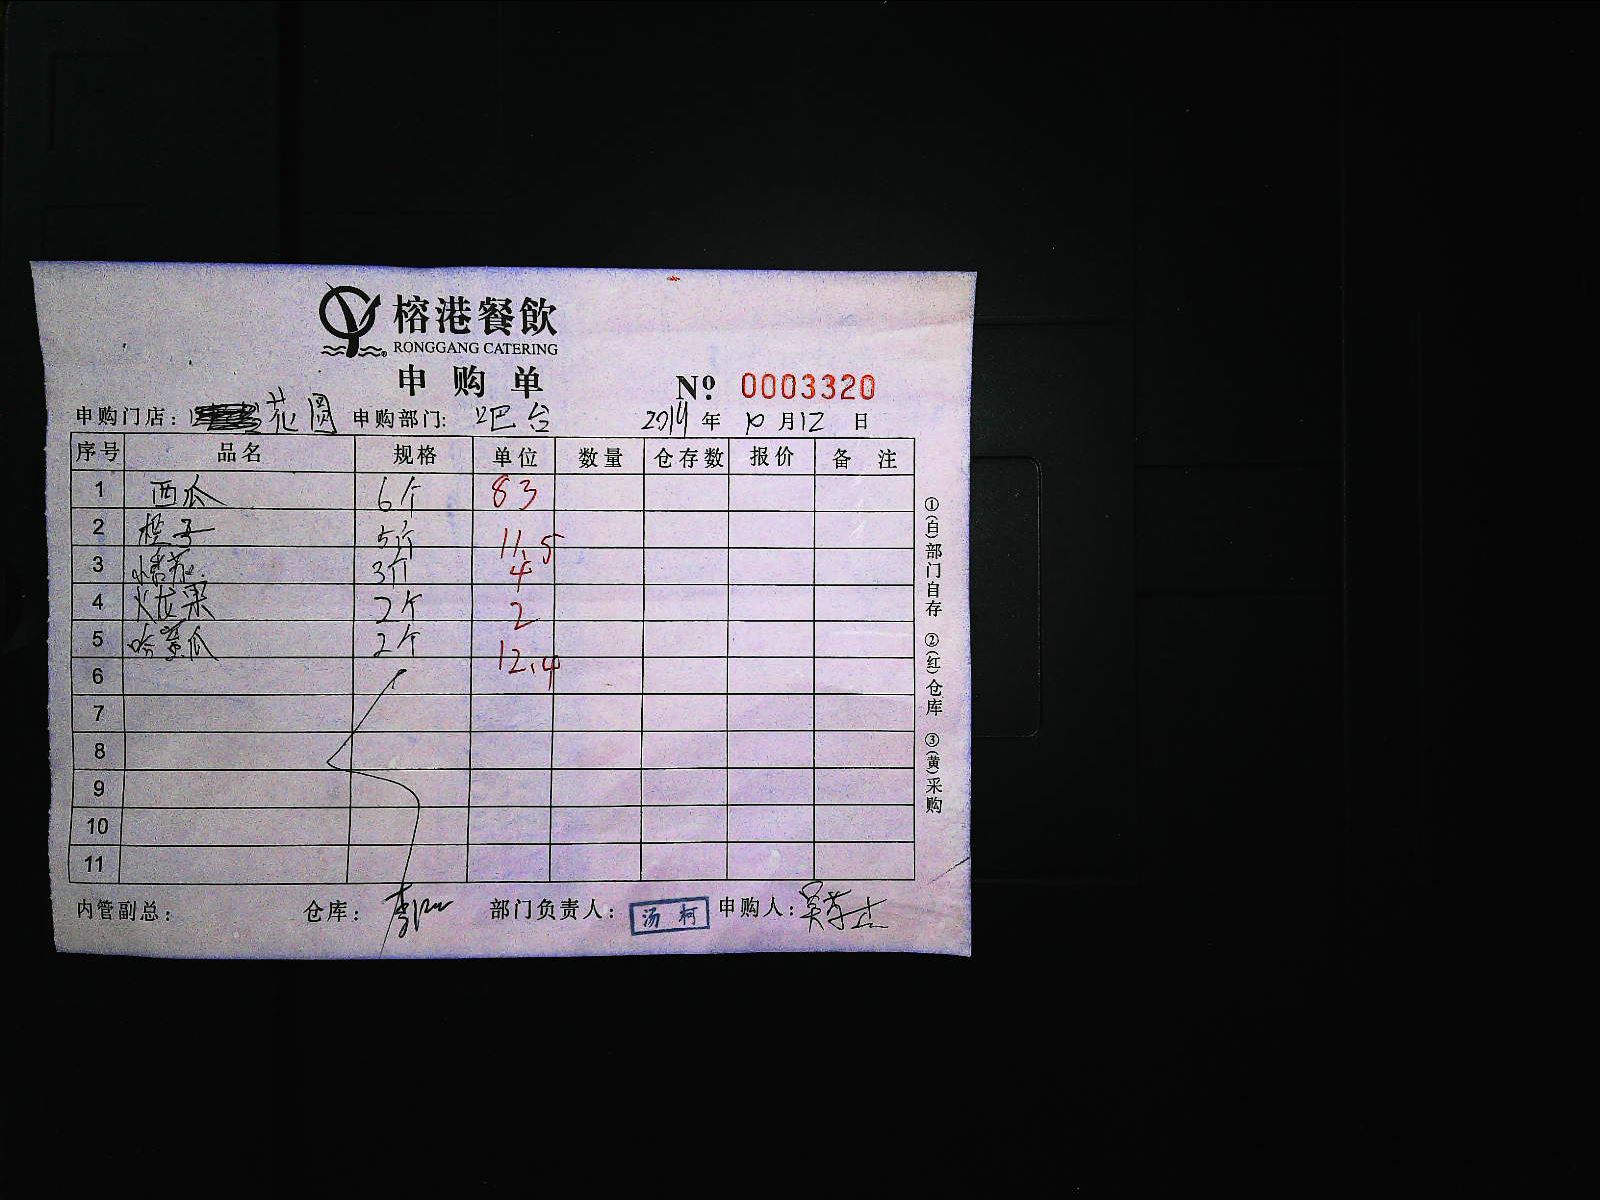 榕港餐飲
RONGGANG CATERING
申购单 № 0003320
申购门店： 花园 申购部门: 吧台 2019年10月12日
序号 品名 规格 单位 数量 仓存数 报价 备注
1 西瓜 6个 83
2 橙子 5斤 11.5
3 3斤 4
4 火龙果 2个 2
5 哈蜜瓜 2个 12.4
6
7
8
9
10
11
①(自)部门自存 ②(红)仓库 ③(黄)采购
内管副总： 仓库： 部门负责人： 汤柯 申购人：